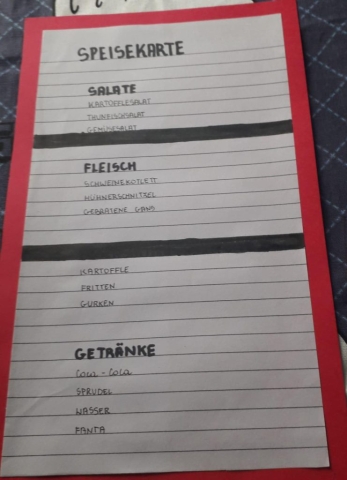 SPEISEKARTE
SALATE
KARTOFFLESALAT
THUNFISCHSALAT
GEMÜSESALAT
FLEISCH
SCHWEINEKOTLETT
HÜHNERSCHNITZEL
GEBRATENE GANS
KARTOFFLE
FRITTEN
GURKEN
GETRÄNKE
Coca - Cola
SPRUDEL
WASSER
FANTA